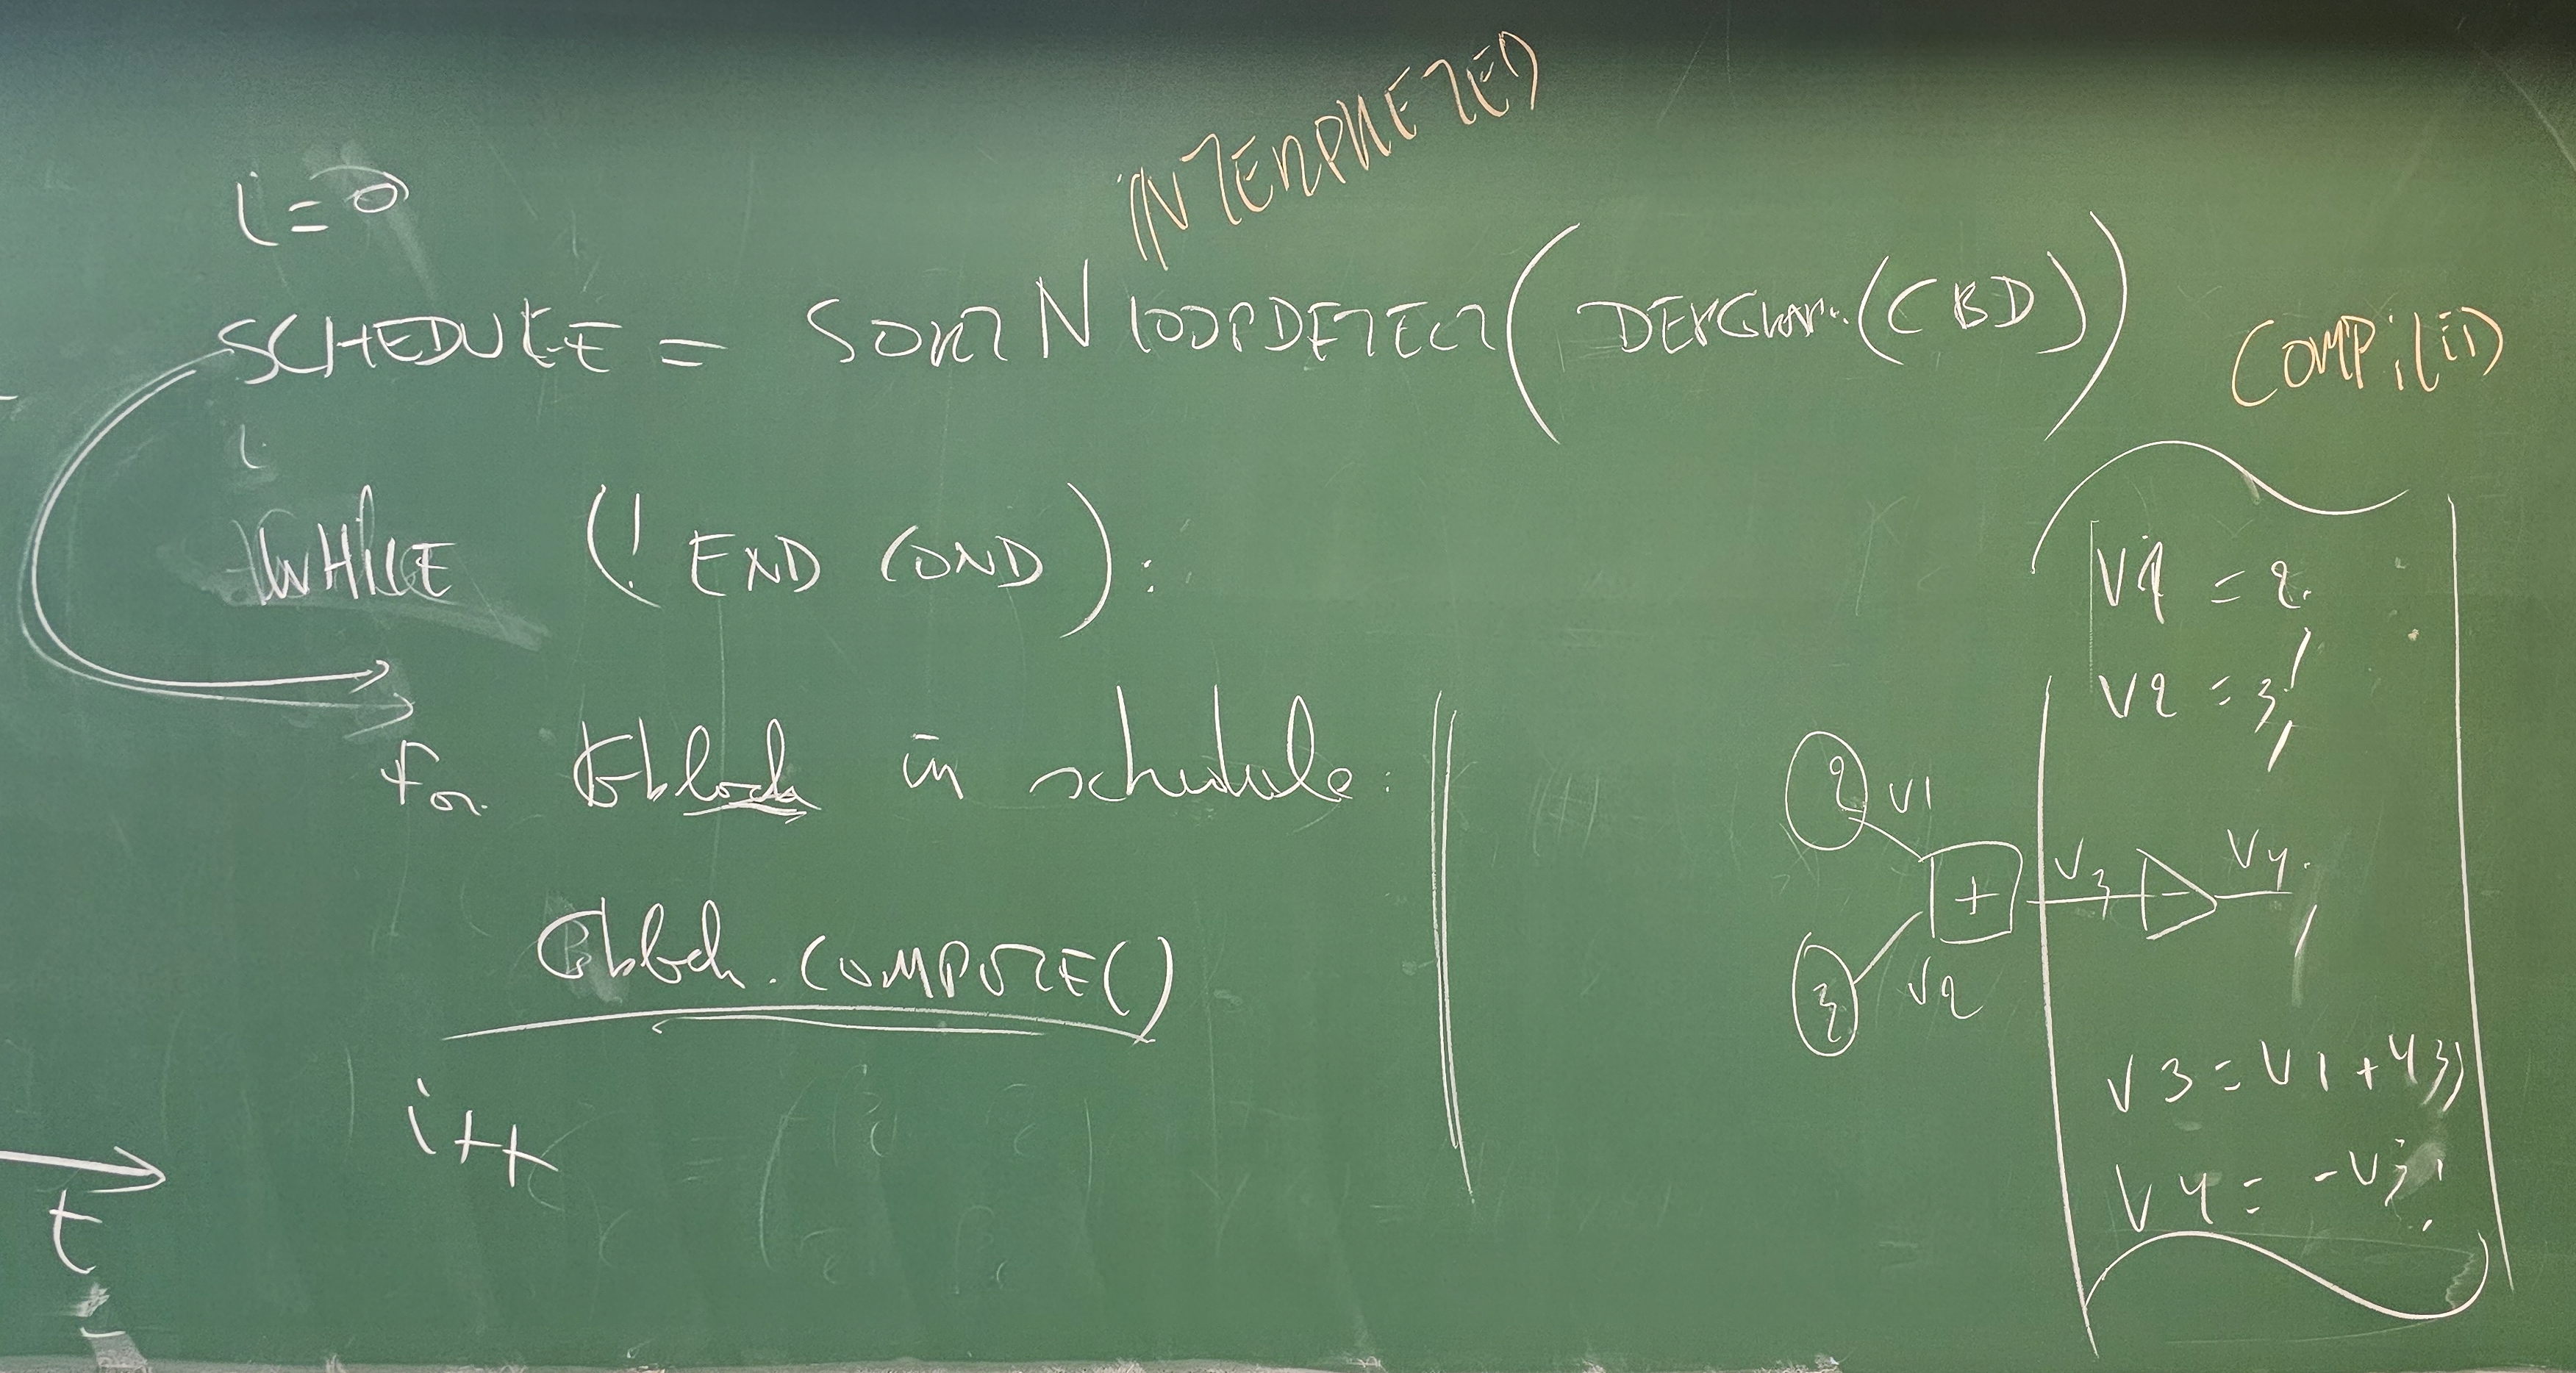 INTERPRETED
i = 0
SCHEDULE = SORT N LOOPDETECT ( DEPGRAPH. (CBD) )
COMPILED
WHILE ( ! END COND ) :
for Gblock in schedule :
Gblock . COMPUTE()
i++
t
V1 = 2
V2 = 3;
2 V1
+ V3 V4
3 V2
V3 = V1 + V3;
V4 = -V3;